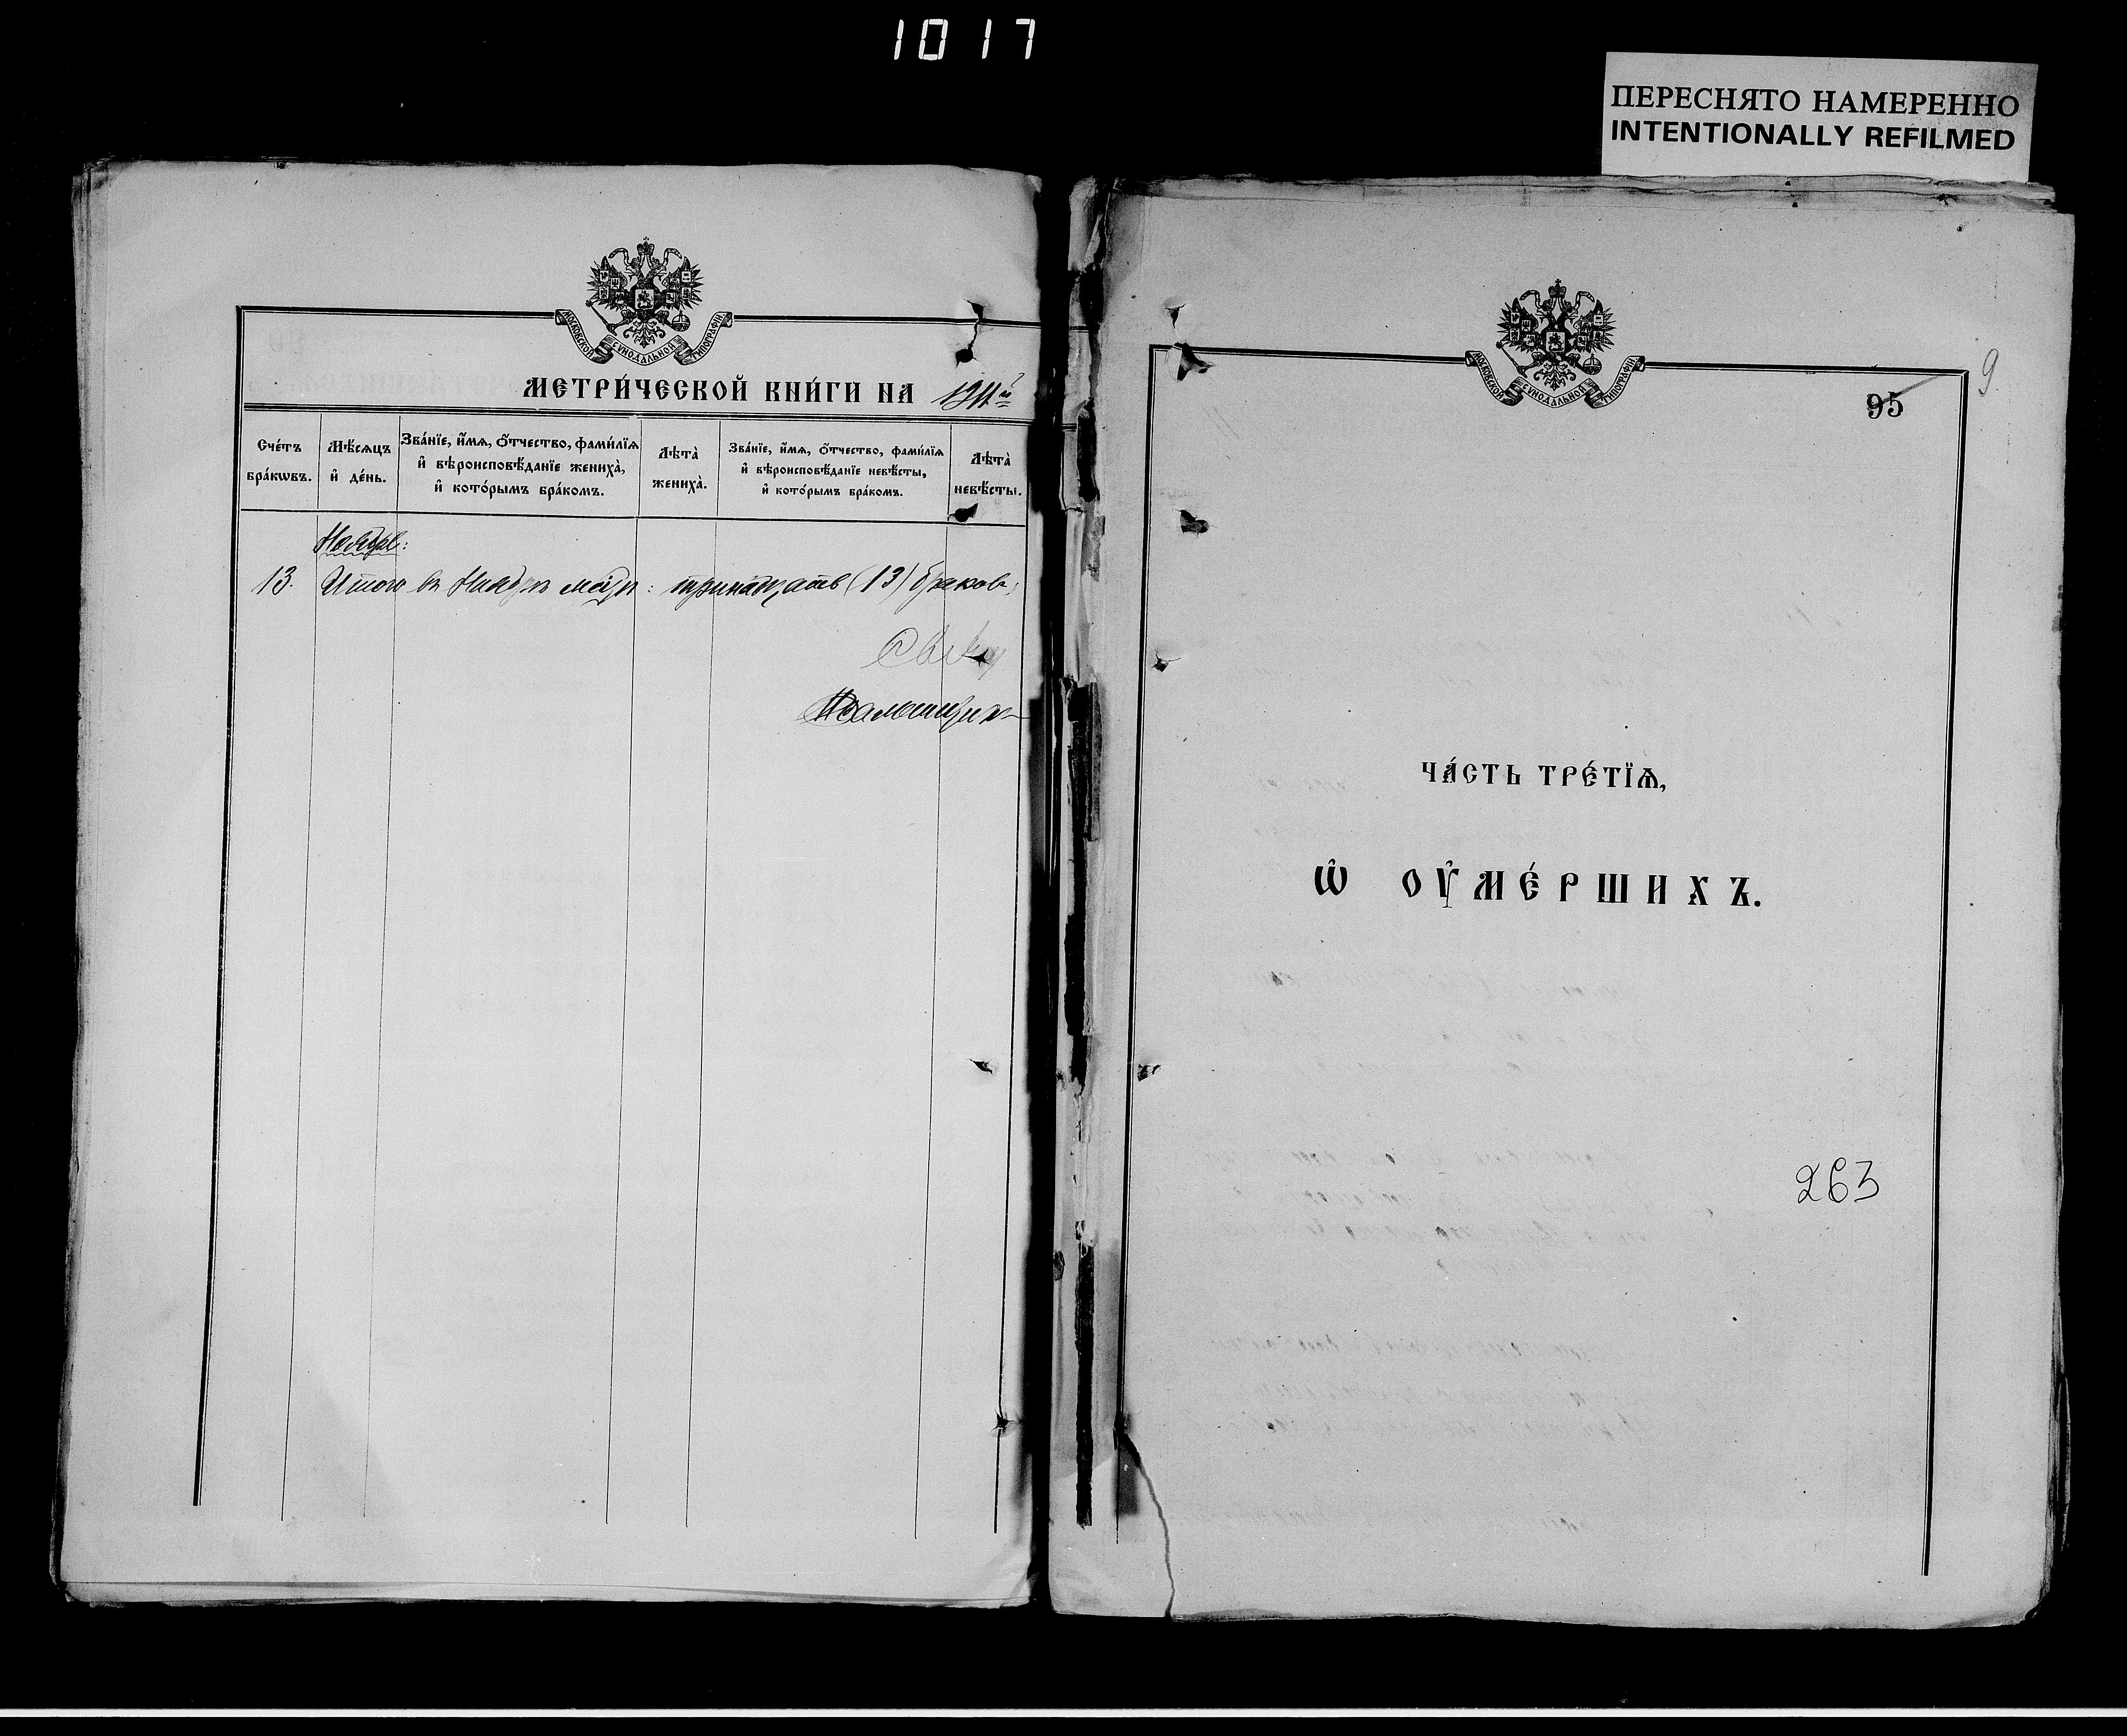 1017
ПЕРЕСНЯТО НАМЕРЕННО
INTENTIONALLY REFILMED
МОСКОВСКОЙ СѴНОДАЛЬНОЙ ТИПОГРАФІИ
МЕТРИ́ЧЕСКОЙ КНИ́ГИ НА 1911й
Сче́тъ бра́кѡвъ.
Мѣ́сѧцъ и҆ де́нь.
Зва́нїе, и҆́мѧ, ѻ҆́тчество, фами́лїѧ
и҆ вѣроисповѣ́данїе жениха̀,
и҆ кото́рымъ бра́комъ.
Лѣта̀ жениха̀.
Зва́нїе, и҆́мѧ, ѻ҆́тчество, фами́лїѧ
и҆ вѣроисповѣ́данїе невѣ́сты,
и҆ кото́рымъ бра́комъ.
Лѣта̀ невѣ́сты.
Ноябрь:
13. Итого въ Ноябрѣ мѣ-цѣ: тринадцать (13) браковъ;
МОСКОВСКОЙ СѴНОДАЛЬНОЙ ТИПОГРАФІИ
95
9.
ЧА́СТЬ ТРЕ́ТЇѦ,
Ѡ҆ ОУ҆МЕ́РШИХЪ.
263